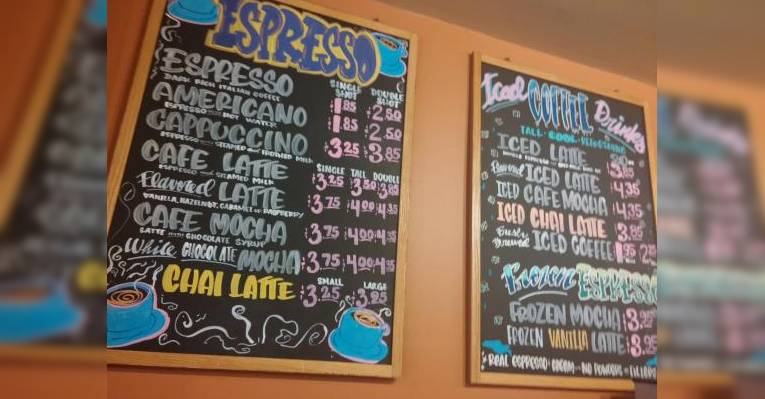 ESPRESSO
SINGLE SHOT DOUBLE SHOT
ESPRESSO 1.85 2.50
DARK RICH ITALIAN COFFEE
AMERICANO 1.85 2.50
ESPRESSO HOT WATER
CAPPUCCINO 3.25 3.85
ESPRESSO STEAMED FROTHED MILK
SINGLE TALL DOUBLE
CAFE LATTE 3.25 3.50 3.85
ESPRESSO STEAMED MILK
Flavored LATTE 3.75 4.00 4.35
VANILLA, HAZELNUT, CARAMEL or RASPBERRY
CAFE MOCHA 3.75 4.00 4.35
LATTE WITH CHOCOLATE SYRUP
White CHOCOLATE MOCHA 3.75 4.00 4.35
SMALL LARGE
CHAI LATTE 3.25 3.95
Iced COFFEE Drinks
TALL COOL
ICED LATTE 3.85
Flavored ICED LATTE 4.35
ICED CAFE MOCHA 4.35
ICED CHAI LATTE 3.85
Brewed ICED COFFEE
Frozen ESPRESSO
FROZEN MOCHA
FROZEN VANILLA LATTE 3.25
REAL ESPRESSO CREAM NO POWDERS